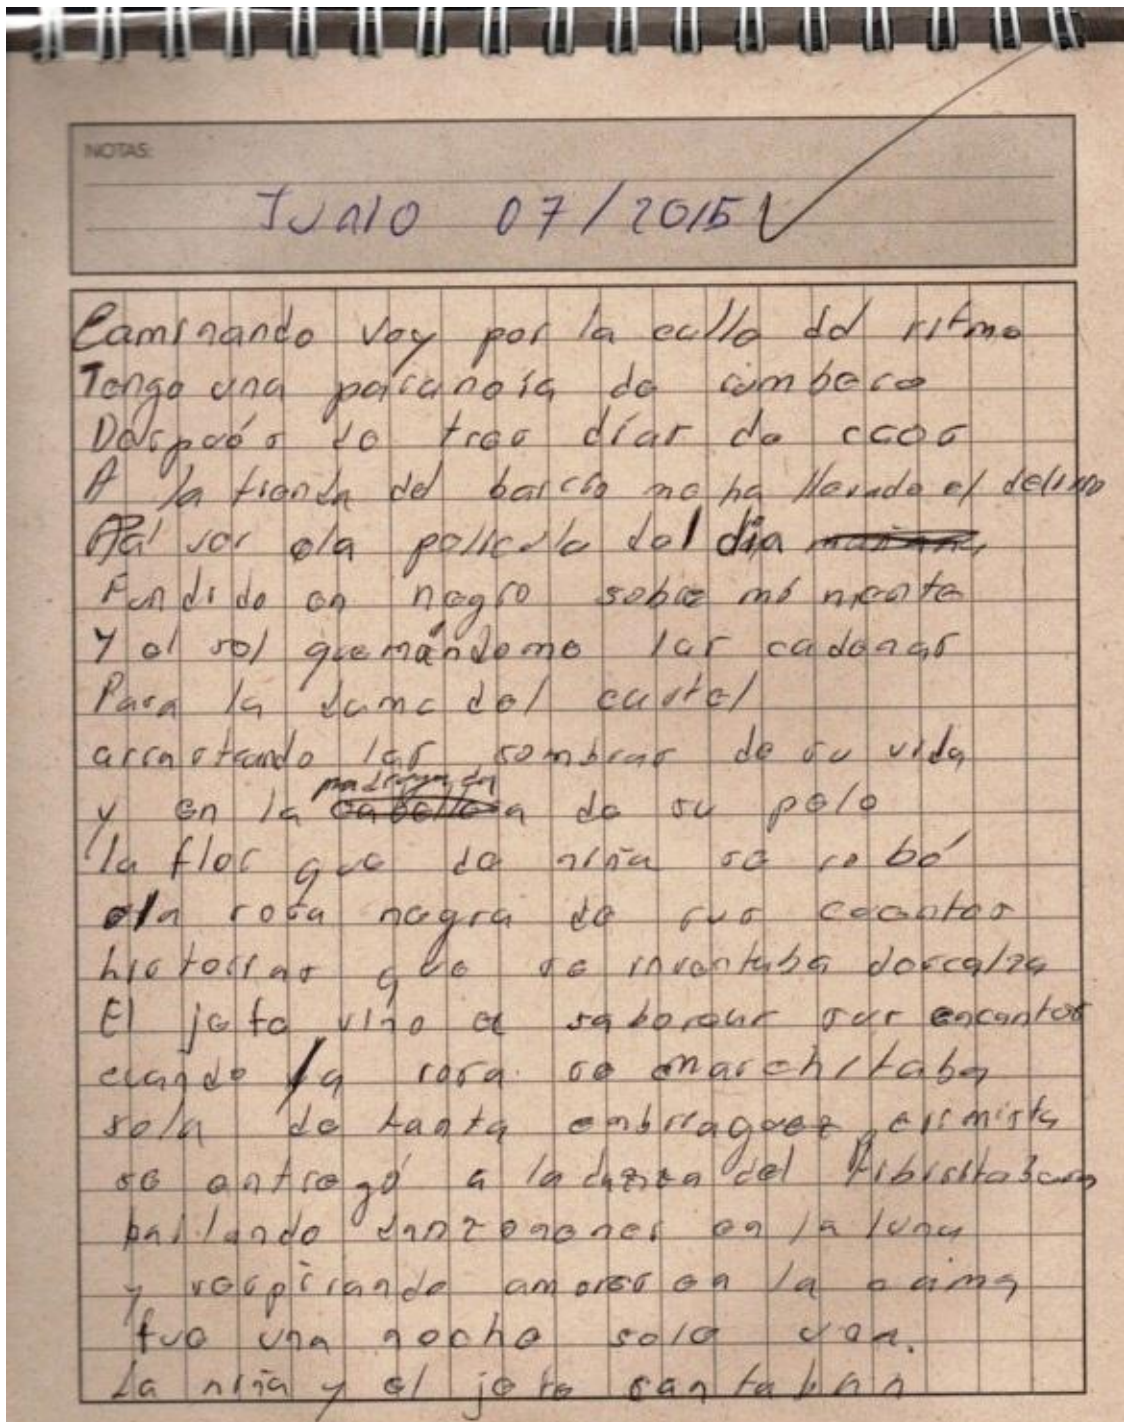 NOTAS:
JUNIO 07/2015
Caminando voy por la calle del ritmo
Tengo una paranoia de
Después de tres días de caos
A la tienda del barrio me ha llevado el delirio
Al ver la película del dia
Fundido en negro sobre mi mente
Y el sol quemándome las cadenas
Para la dama del cartel
arrastrando las sombras de su vida
y en la madrugada de su pelo
la flor que de niña se robó
la rosa negra de sus cuentos
historias que se inventaba descalza
El jefe vino a saborear sus encantos
cuando la rosa se marchitaba
sola de tanta embriaguez
se entregó a la danza del
bailando danzones en la luna
y respirando amores en la
fue una noche solo una.
La niña y el jefe cantaban